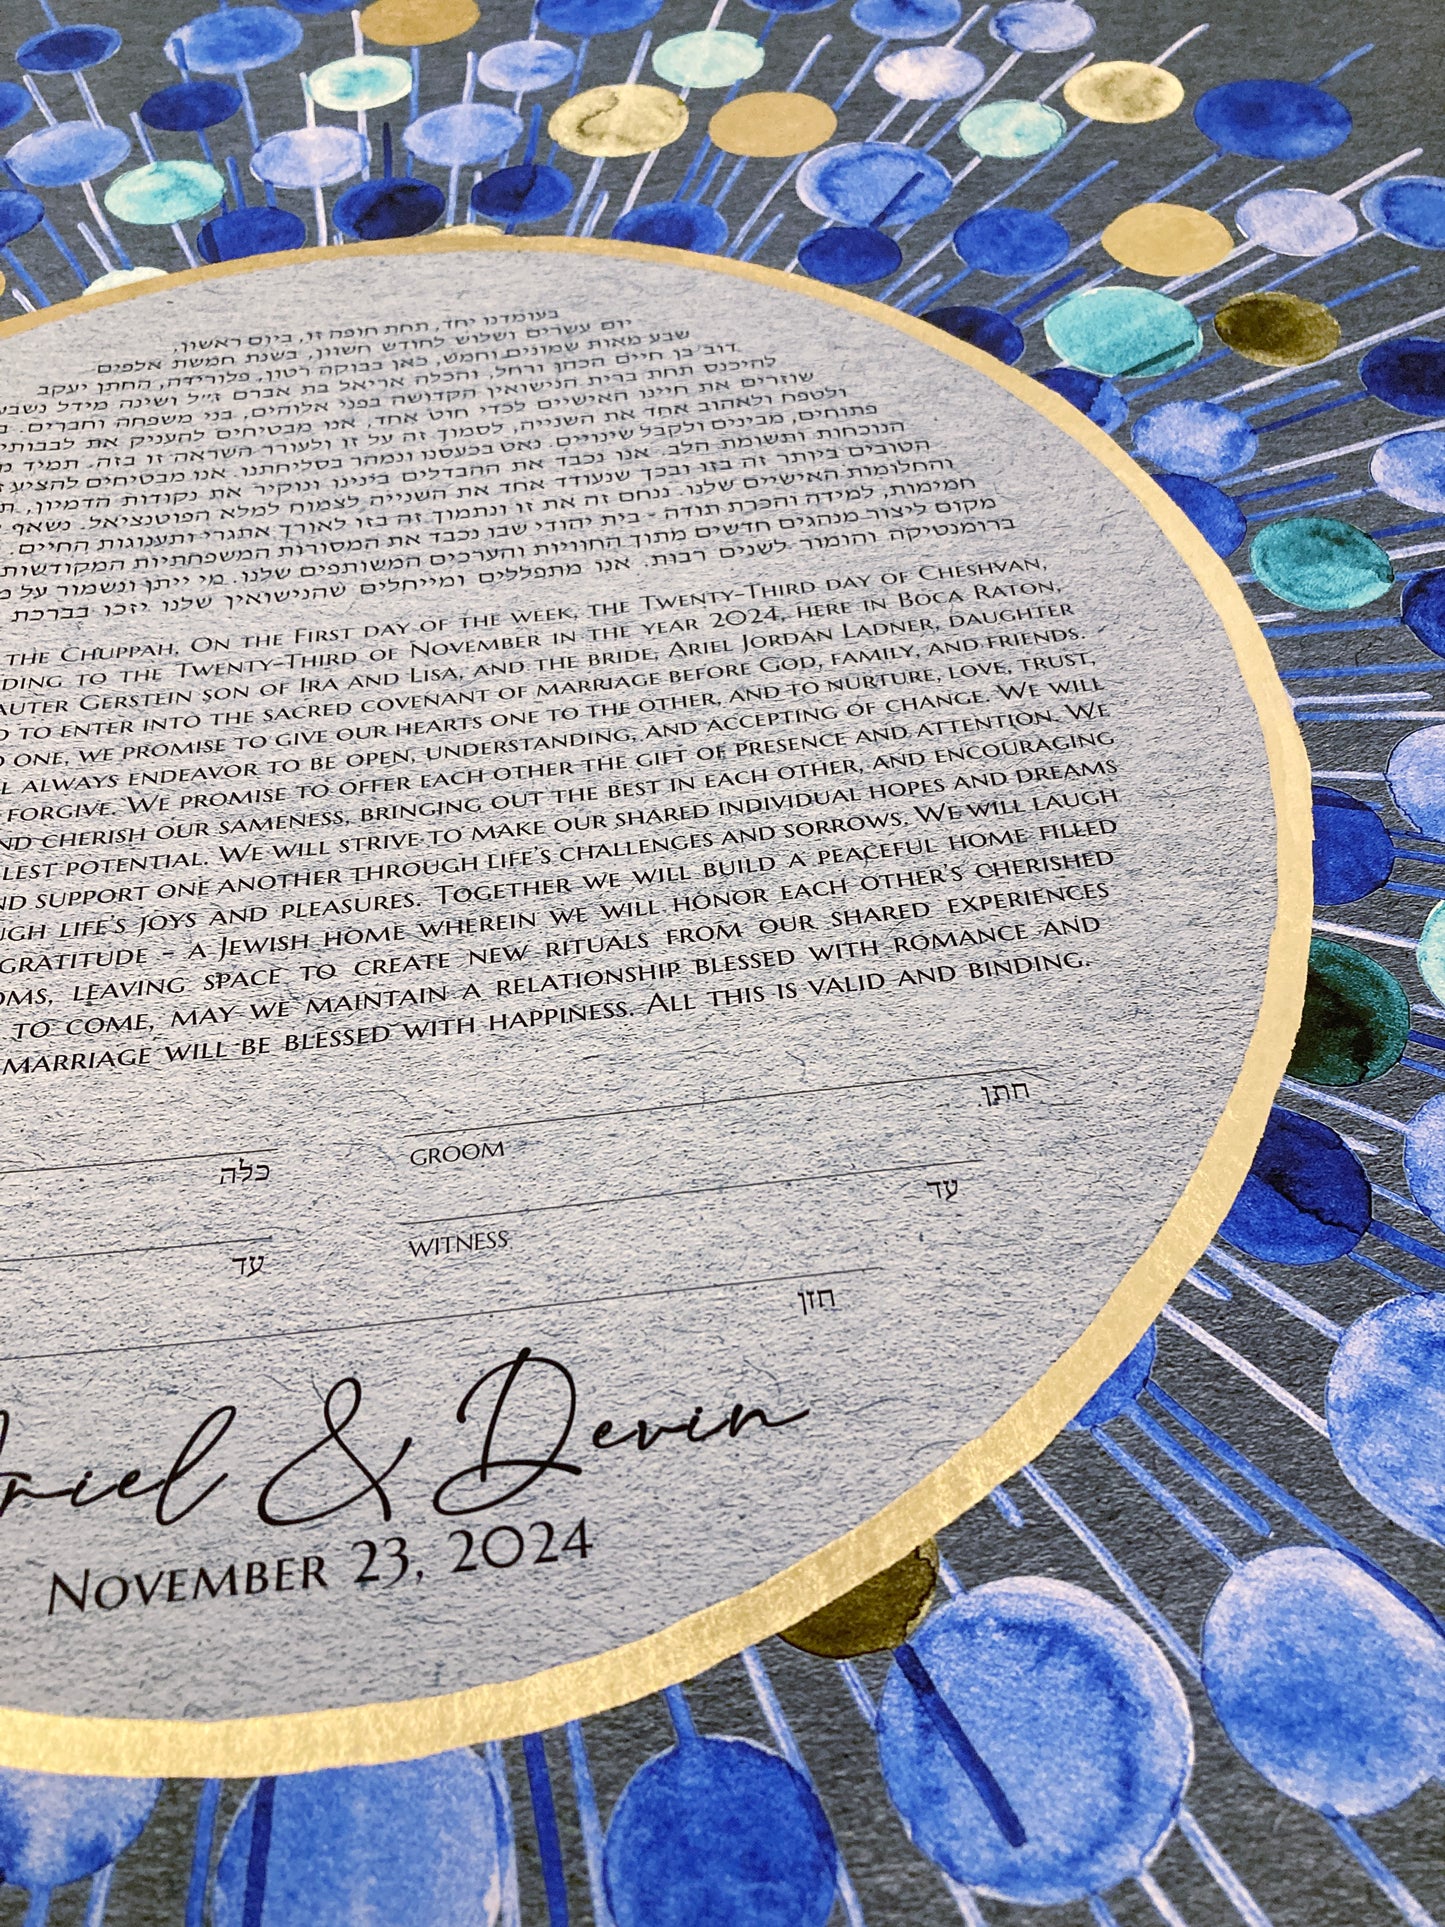 בעומדנו יחד, תחת חופה זו, ביום ראשון,
יום עשרים ושלוש לחודש חשוון, בשנת חמשת אלפים
שבע מאות שמונים וחמש, כאן בבוקה רטון, פלורידה, החתן יעקב
דוב בן חיים הכהן ורחל, והכלה אריאל בת אברם ז״ל ושינה מידל נשבע
להיכנס תחת ברית הנישואין הקדושה בפני אלוהים, בני משפחה וחברים.
שוזרים את חיינו האישיים לכדי חוט אחד, אנו מבטיחים להעניק את לבבותי
ולטפח ולאהוב אחד את השנייה, לסמוך זה על זו ולעורר השראה זו בזה. תמיד
פתוחים, מבינים ולקבל שינויים. נאט בכעסנו ונמהר בסליחתנו. אנו מבטיחים להציע
הנוכחות ותשומת הלב. אנו נכבד את ההבדלים בינינו ונוקיר את נקודות הדמיון,
הטובים ביותר זה בזו ובכך שנעודד אחד את השנייה לצמוח למלא הפוטנציאל. נשאף
והחלומות האישיים שלנו. ננחם זה את זו ונתמוך זה בזו לאורך אתגרי ותענוגות החיים.
חמימות, למידה והכרת תודה - בית יהודי שבו נכבד את המסורות המשפחתיות המקודשות
מקום ליצור מנהגים חדשים מתוך החוויות והערכים המשותפים שלנו. מי ייתן ונשמור על
ברומנטיקה והומור לשנים רבות. אנו מתפללים ומייחלים שהנישואין שלנו יזכו בברכת
the Chuppah, On the First day of the week, the Twenty-Third day of Cheshvan,
ding to the Twenty-Third of November in the year 2024, here in Boca Raton,
auter Gerstein son of Ira and Lisa, and the bride, Ariel Jordan Ladner, daughter
d to enter into the sacred covenant of marriage before God, family, and friends.
o one, we promise to give our hearts one to the other, and to nurture, love, trust,
l always endeavor to be open, understanding, and accepting of change. We will
forgive. We promise to offer each other the gift of presence and attention. We
nd cherish our sameness, bringing out the best in each other, and encouraging
lest potential. We will strive to make our shared individual hopes and dreams
nd support one another through life's challenges and sorrows. We will laugh
ugh life's joys and pleasures. Together we will build a peaceful home filled
gratitude - a Jewish home wherein we will honor each other's cherished
oms, leaving space to create new rituals from our shared experiences
to come, may we maintain a relationship blessed with romance and
marriage will be blessed with happiness. All this is valid and binding.
כלה GROOM חתן
עד WITNESS עד
חזן
Ariel & Devin
November 23, 2024